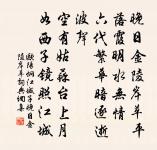 晚日金陵岸草平
落霞明水無情
六代繁華暗逐逝
波聲
空有姑蘇台上月
如西子鏡照江城
歐陽炯江城子晚日金
陵岸草平